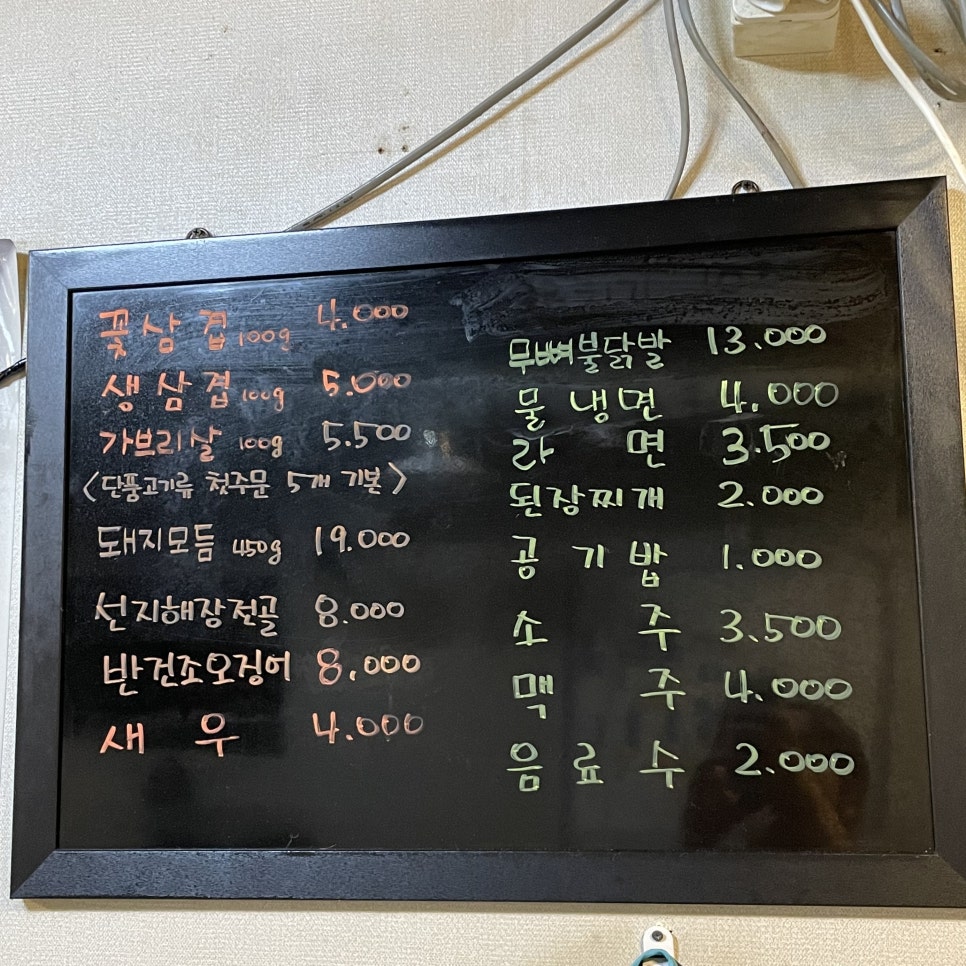 꽃삼겹 100g 4.000
생삼겹 100g 5.000
가브리살 100g 5.500
<단품고기류 첫주문 5개 기본>
돼지모듬 450g 19.000
선지해장전골 8.000
반건조오징어 8.000
새우 4.000
무뼈불닭발 13.000
물냉면 4.000
라면 3.500
된장찌개 2.000
공기밥 1.000
소주 3.500
맥주 4.000
음료수 2.000